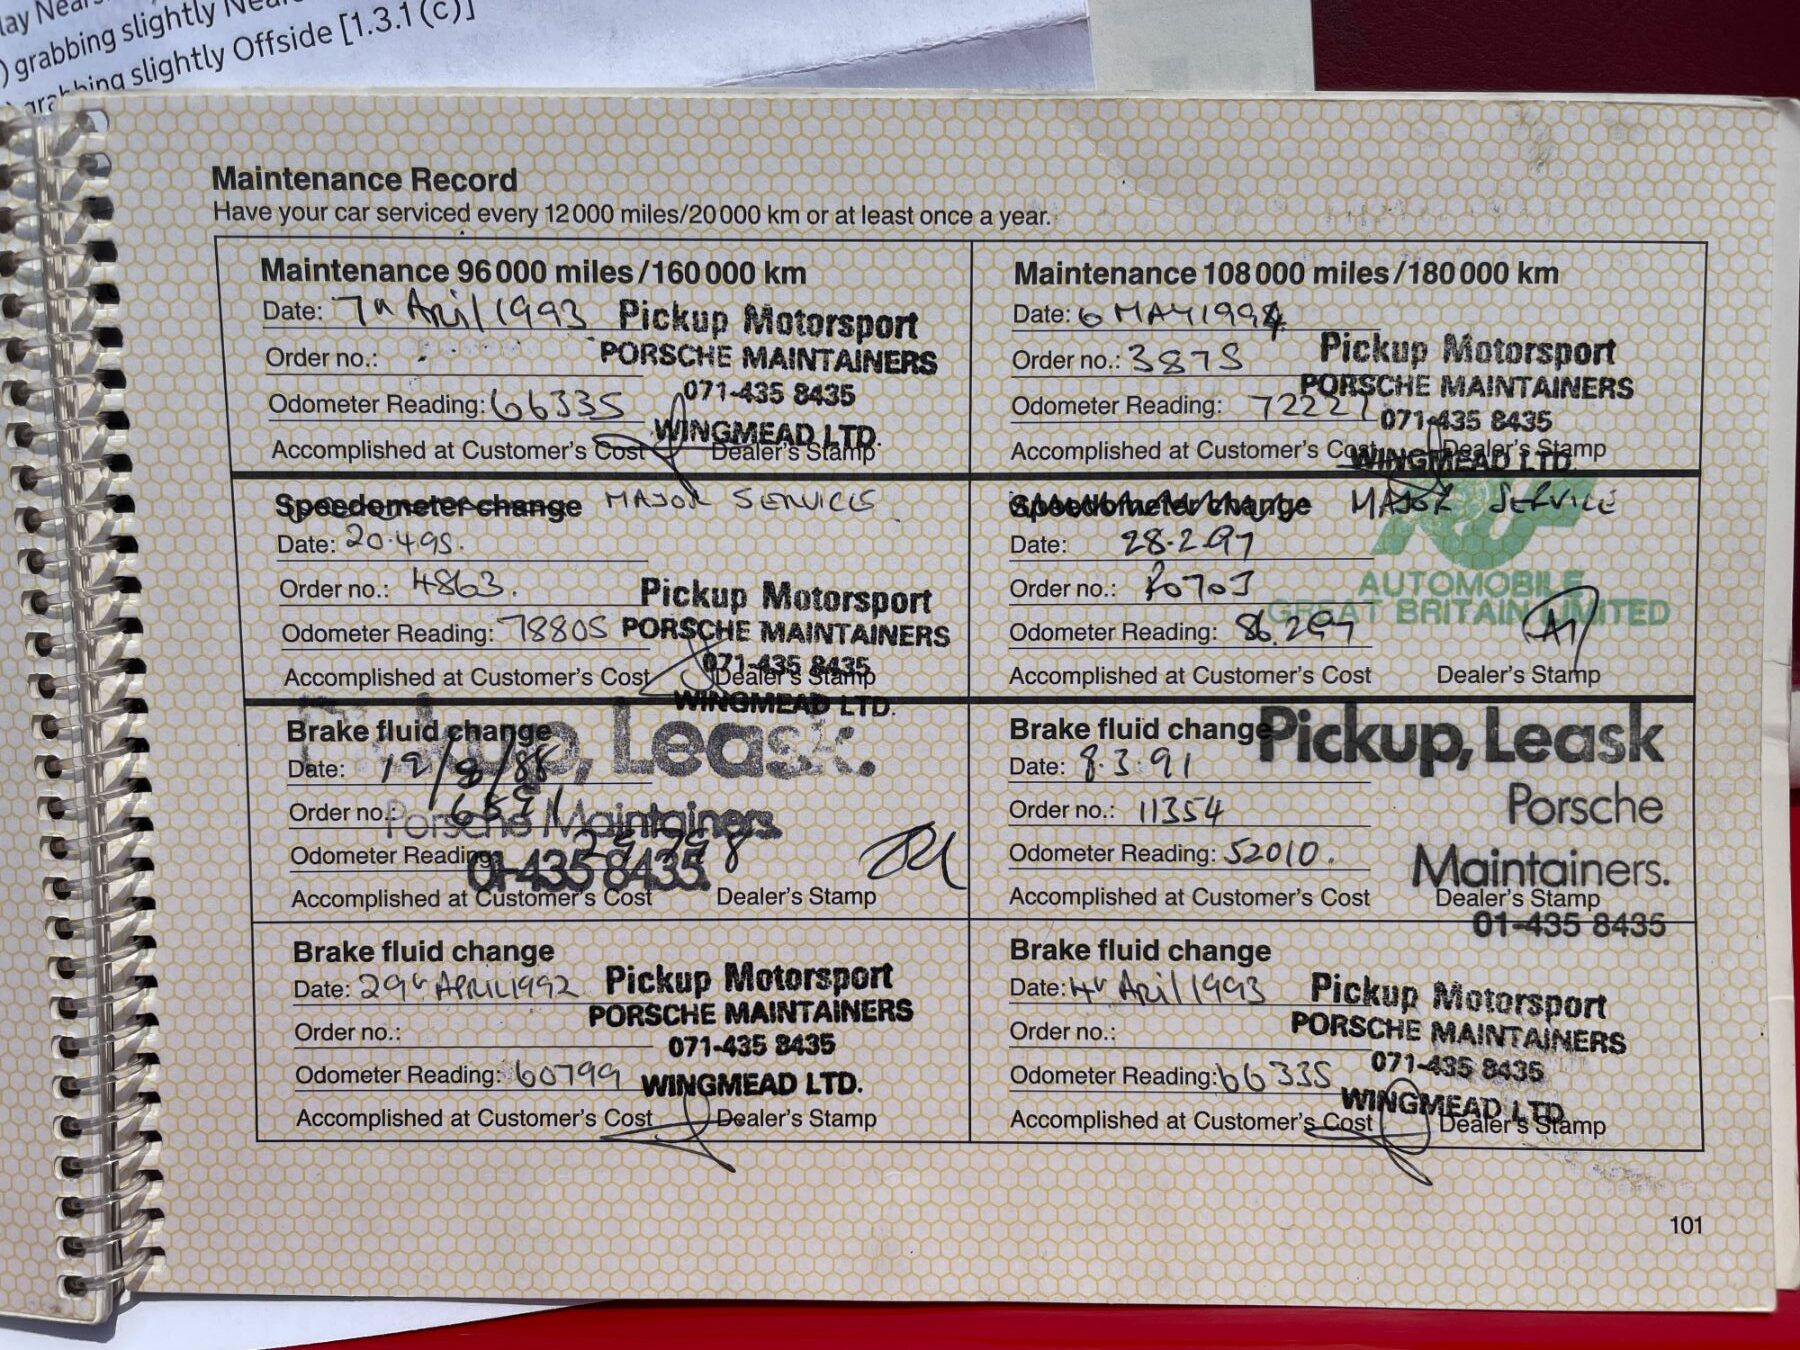 grabbing slightly
grabbing slightly Offside [1.3.1(c)]
Maintenance Record
Have your car serviced every 12 000 miles/20 000 km or at least once a year.
Maintenance 96 000 miles/160 000 km
Date: 7th April 1993
Order no.:
Odometer Reading: 66335
Accomplished at Customer's Cost
Dealer's Stamp
Pickup Motorsport
PORSCHE MAINTAINERS
071-435 8435
WINGMEAD LTD.
Maintenance 108 000 miles/180 000 km
Date: 6 MAY 1994
Order no.: 3875
Odometer Reading: 72221
Accomplished at Customer's Cost
Dealer's Stamp
Pickup Motorsport
PORSCHE MAINTAINERS
071-435 8435
WINGMEAD LTD.
Speedometer change MAJOR SERVICE
Date: 20.4.95.
Order no.: 4863.
Odometer Reading: 78805
Accomplished at Customer's Cost
Dealer's Stamp
Pickup Motorsport
PORSCHE MAINTAINERS
071-435 8435
WINGMEAD LTD.
Speedometer change MAJOR SERVICE
Date: 28.2.97
Order no.:
Odometer Reading: 86.297
Accomplished at Customer's Cost
Dealer's Stamp
AUTOMOBILE
GREAT BRITAIN LIMITED
Brake fluid change
Date: 12/8/88
Order no.:
Odometer Reading:
Accomplished at Customer's Cost
Dealer's Stamp
Pickup, Leask.
Porsche Maintainers.
01-435 8435.
Brake fluid change
Date: 8.3.91
Order no.: 11354
Odometer Reading: 52010.
Accomplished at Customer's Cost
Dealer's Stamp
Pickup, Leask
Porsche
Maintainers.
01-435 8435
Brake fluid change
Date: 29th APRIL 1992
Order no.:
Odometer Reading: 60799
Accomplished at Customer's Cost
Dealer's Stamp
Pickup Motorsport
PORSCHE MAINTAINERS
071-435 8435
WINGMEAD LTD.
Brake fluid change
Date: April 1993
Order no.:
Odometer Reading: 66335
Accomplished at Customer's Cost
Dealer's Stamp
Pickup Motorsport
PORSCHE MAINTAINERS
071-435 8435
WINGMEAD LTD.
101